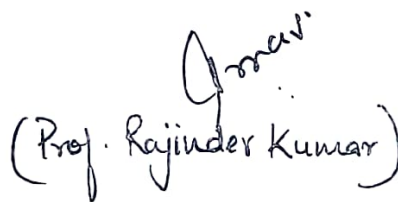 (Prof. Rajinder Kumar)